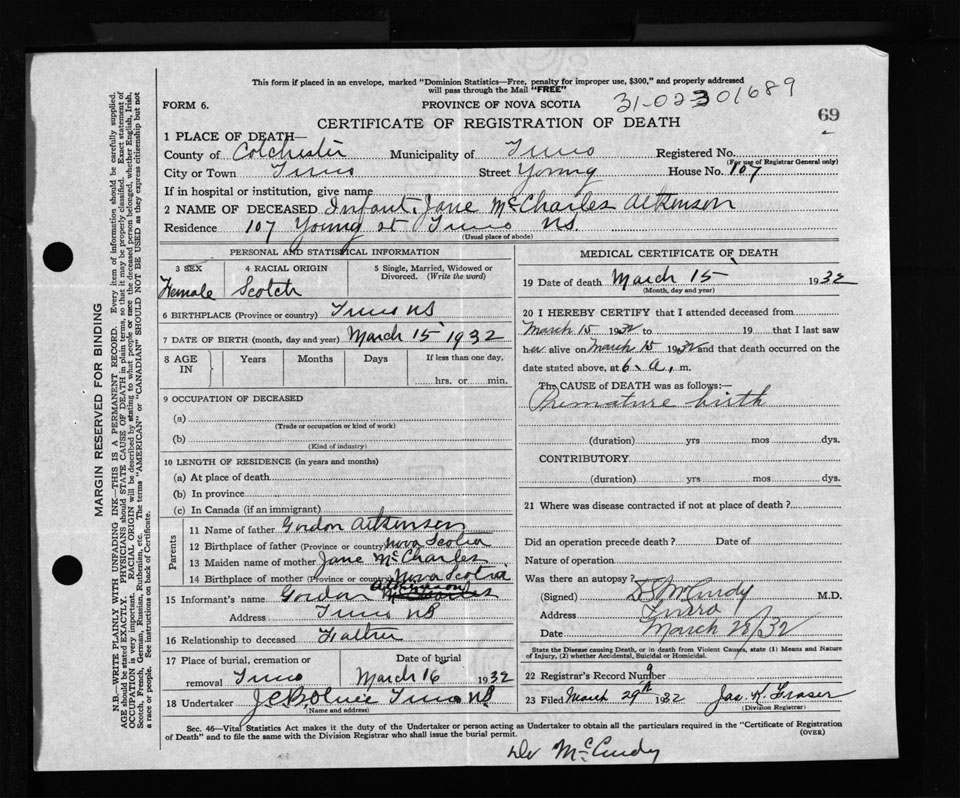 This form if placed in an envelope, marked "Dominion Statistics—Free, penalty for improper use, $300," and properly addressed
will pass through the Mail "FREE"
FORM 6.
PROVINCE OF NOVA SCOTIA
31-02-301689
69
CERTIFICATE OF REGISTRATION OF DEATH
1 PLACE OF DEATH—
County of Colchester Municipality of Truro Registered No.
(For use of Registrar General only)
City or Town Truro Street Young House No. 107
If in hospital or institution, give name
2 NAME OF DECEASED Infant, Jane McCharles Aitkinson
Residence 107 Young st Truro NS.
(Usual place of abode)
PERSONAL AND STATISTICAL INFORMATION
3 SEX 4 RACIAL ORIGIN 5 Single, Married, Widowed or Divorced. (Write the word)
Female Scotch
6 BIRTHPLACE (Province or country) Truro NS
7 DATE OF BIRTH (month, day and year) March 15 1932
8 AGE IN Years Months Days If less than one day,
hrs. or min.
9 OCCUPATION OF DECEASED
(a)
(Trade or occupation or kind of work)
(b)
(Kind of industry)
10 LENGTH OF RESIDENCE (in years and months)
(a) At place of death
(b) In province
(c) In Canada (if an immigrant)
Parents
11 Name of father Gordon Aitkinson
12 Birthplace of father (Province or country) Nova Scotia
13 Maiden name of mother Jane McCharles
14 Birthplace of mother (Province or country) Nova Scotia
15 Informant's name Gordon Aitkinson McCharles
Address Truro NS
16 Relationship to deceased Father
17 Place of burial, cremation or removal Truro
Date of burial March 16 1932
18 Undertaker Truro NS
(Name and address)
MEDICAL CERTIFICATE OF DEATH
19 Date of death March 15 1932
(Month, day and year)
20 I HEREBY CERTIFY that I attended deceased from
March 15 1932 to 19 that I last saw
her alive on March 15 1932 and that death occurred on the
date stated above, at 6. a. m.
The CAUSE OF DEATH was as follows:—
Premature birth
(duration) yrs mos dys.
CONTRIBUTORY
(duration) yrs mos dys.
21 Where was disease contracted if not at place of death?
Did an operation precede death? Date of
Nature of operation
Was there an autopsy?
(Signed) McCurdy M.D.
Address Truro
Date March 28/32
State the Disease causing Death, or in death from Violent Causes, state (1) Means and Nature
of Injury, (2) whether Accidental, Suicidal or Homicidal.
22 Registrar's Record Number 9
23 Filed March 29th 1932 Jas. K. Fraser
(Division Registrar)
Sec. 46—Vital Statistics Act makes it the duty of the Undertaker or person acting as Undertaker to obtain all the particulars required in the "Certificate of Registration
of Death" and to file the same with the Division Registrar who shall issue the burial permit.
(OVER)
Dr McCurdy
MARGIN RESERVED FOR BINDING
N.B.—WRITE PLAINLY WITH UNFADING INK—THIS IS A PERMANENT RECORD. Every item of information should be carefully supplied.
AGE should be stated EXACTLY. PHYSICIANS should STATE CAUSE OF DEATH in plain terms, so that it may be properly classified. Exact statement of
OCCUPATION is very important. RACIAL ORIGIN will be described by stating to what people or race the deceased person belonged, whether English, Irish,
Scotch, French, German, Russian, Ruthenian, etc. The terms "AMERICAN" or "CANADIAN" SHOULD NOT BE USED as they express citizenship but not
a race or people. See instructions on back of Certificate.